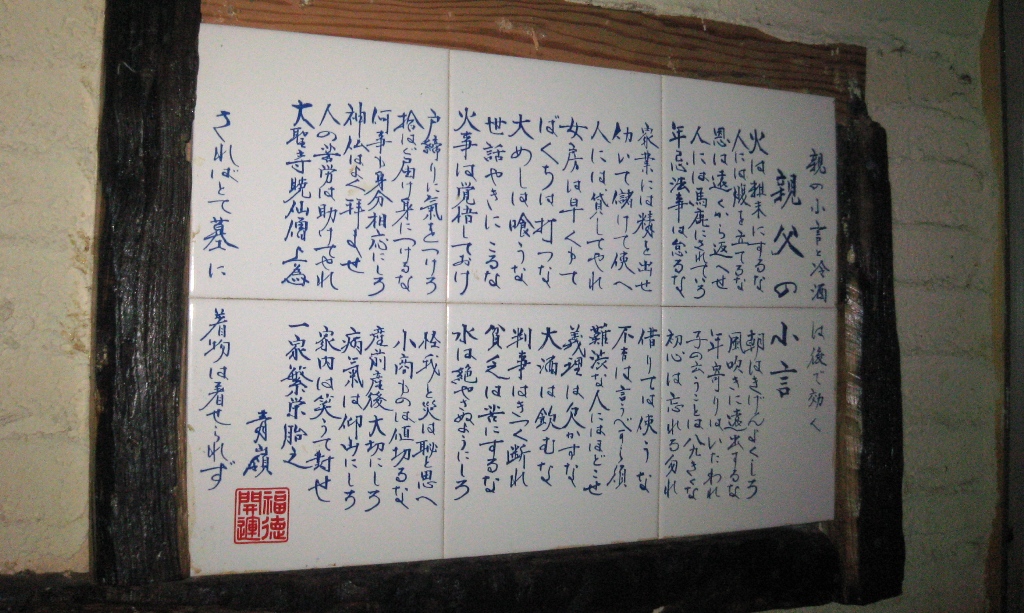 親の小言と冷酒は後で効く
親父の小言
火は粗末にするな 朝はきげんよくしろ
人には腹を立てるな 風吹きに遠出するな
恩は遠くから返へせ 年寄りはいたわれ
人には馬鹿にされていろ 子の云うことは八九きくな
年忌法事は怠るな 初心は忘れる勿れ
家業には精を出せ 借りては使うな
仂いて儲けて使へ 不吉は言うべ
人には貸してやれ 難渋な人にはほどこせ
女房は早くもて 義理は欠かすな
ばくちは打つな 大酒は飲むな
大めしは喰うな 判事はきつく断れ
世話やきになるな 貧乏は苦にするな
火事は覚悟しておけ 水は絶やさぬようにしろ
戸締りに氣をつけろ 怪我と災は恥と思へ
拾はゞ届け身につけるな 小商ものは値切るな
何事も身分相応にしろ 産前産後大切にしろ
神仏はよく拝ませ 病氣は仰山にしろ
人の苦労は助けてやれ 家内は笑うて封せ
大聖寺暁仙僧上為 一家繁栄胎之
青嶺
福徳開運
さればとて墓に 着物は着せられず